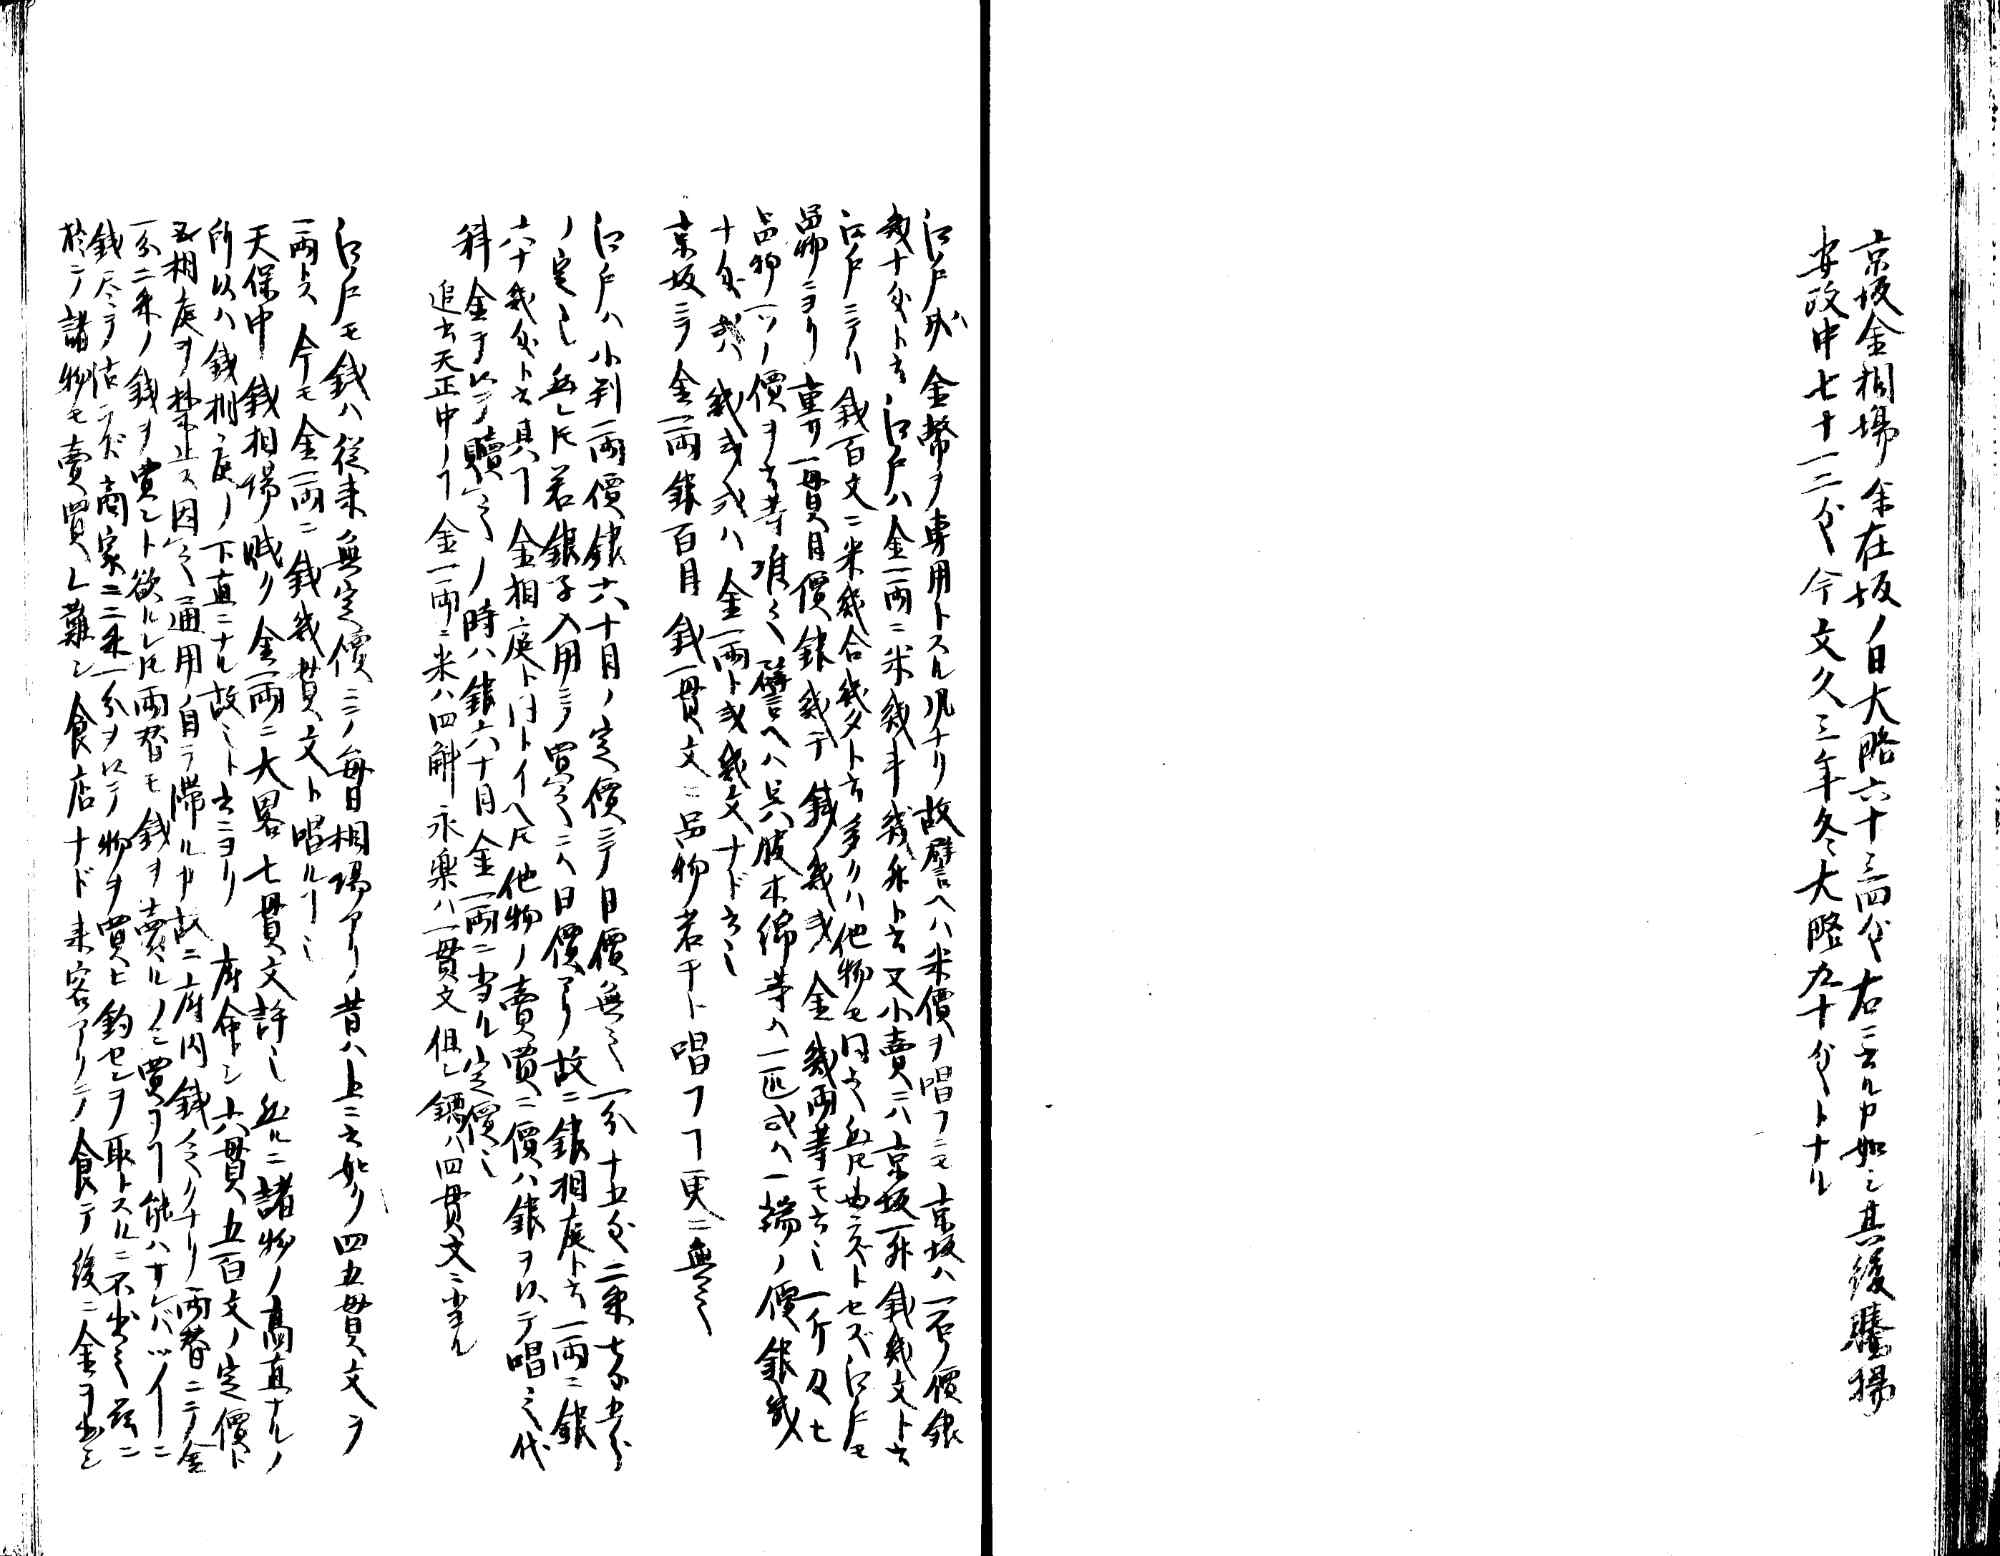 京坂金相場余在坂ノ日大略六十三四匁右ニ云ルカ如シ其後騰揚
安政中七十一二匁今文久三年冬大略九十匁トナル
江戸ハ金幣ヲ専用トスル風ナリ故譬ヘハ米價ヲ唱フニモ京坂ハ一石價銀
幾十匁ト云江戸ハ金一両ニ米幾斗幾升ト云又小賣ニハ京坂一升錢幾文ト云
江戸ニテハ錢百文ニ米幾合幾夕ト云多クハ他物モ同之然トモ必ラズトセズ江戸モ
品物ニヨリ重サ一貫目價銀幾匁錢幾或金幾両等モ云也一斤及ヒ
品物一ツノ價ヲ云等准之譬ヘハ呉服木綿等ハ一匹或ハ一端ノ價銀幾
十匁或ハ錢或ハ金一両ト或幾文ナド云也
京坂ニテ金一両銀百目錢一貫文ニ品物若干ト唱フヿ更ニ無之
江戸ハ小判一両價銀六十目ノ定價ニテ日價無之一分十五匁二朱七匁五分
ノ定也然レトモ若銀子入用ニテ買之ニハ日價アリ故ニ銀相庭ト云一両ニ銀
六十幾匁ト云其ヿ金相庭ト同トイヘトモ他物ノ賣買ニ價ハ銀ヲ以テ唱之代
料金ヲ以テ贖之ノ時ハ銀六十目金一両ニ当ル定價也
追書天正中ノヿ金一両ニ米ハ四斛永樂ハ一貫文但シ鐚ハ四貫文ニ当ル
江戸モ錢ハ従来無定價ニテ毎日相場アリ昔ハ上ニ云如ク四五貫文ヲ
一両トス今モ金一両ニ錢幾貫文ト唱ルヿ也
天保中錢相場賎ク金一両ニ大畧七貫文許也然ルニ諸物ノ高直ナルノ
所以ハ錢相庭ノ下直ニナル故也ト云ニヨリ府命シ六貫五百文ノ定價ト
シ相庭ヲ禁止ス因之通用ノ自ラ滞ルカ故ニ府内錢乏クナリ両替ニテ金
一分二朱ノ錢ヲ買ント欲レトモ両替モ錢ヲ賣ルノミ買フヿ能ハサレバツイニ
錢尽テ沽ラズ商家ニ二朱一分ヲ以テ物ヲ買ヒ釣セヲ取トスルニ不出之故ニ
於之諸物モ賣買シ難シ食店ナド来客アリテ食テ後ニ金ヲ出シ